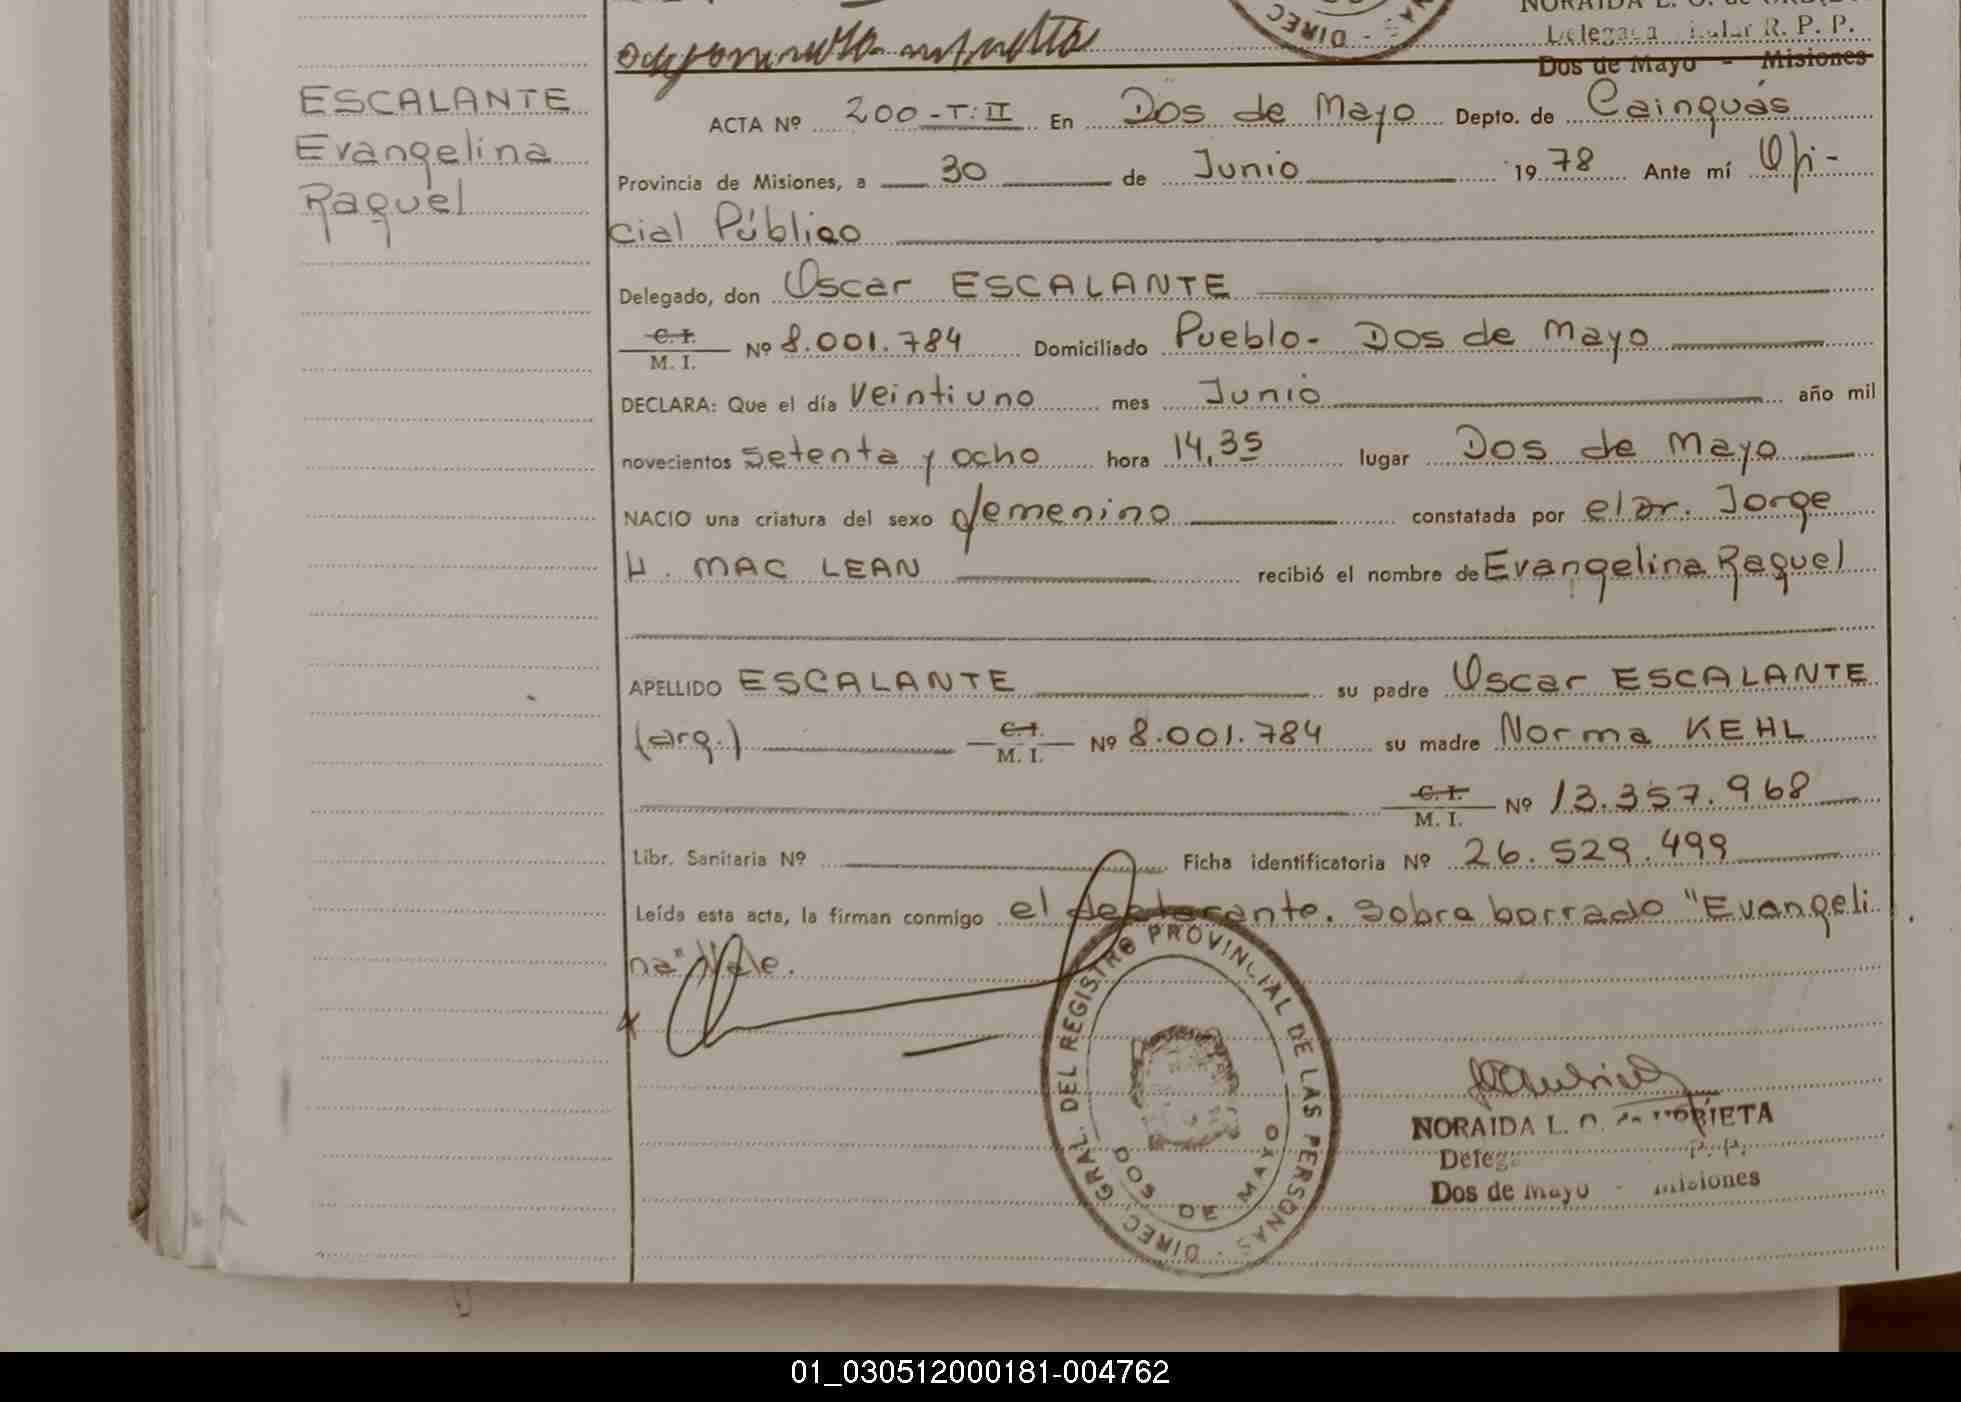 NORAIDA L. O. de
R. P. P.
Dos de Mayo - Misiones
DIREC
ESCALANTE
Evangelina
Raquel
ACTA Nº 200-T:II En Dos de Mayo Depto. de Cainguás
Provincia de Misiones, a 30 de Junio 1978 Ante mí Ofi-
cial Público
Delegado, don Oscar ESCALANTE
C. I.
M. I. Nº 8.001.784 Domiciliado Pueblo- Dos de Mayo
DECLARA: Que el día Veintiuno mes Junio año mil
novecientos setenta y ocho hora 14,35 lugar Dos de Mayo
NACIO una criatura del sexo femenino constatada por el Dr. Jorge
H. MAC LEAN recibió el nombre de Evangelina Raquel
APELLIDO ESCALANTE su padre Oscar ESCALANTE
(arg.) C. I.
M. I. Nº 8.001.784 su madre Norma KEHL
C. I.
M. I. Nº 13.357.968
Libr. Sanitaria Nº Ficha identificatoria Nº 26.529.499
Leída esta acta, la firman conmigo el declarante. Sobre borrado "Evangeli
na" Vale.
DIREC. GRAL. DEL REGISTRO PROVINCIAL DE LAS PERSONAS
DOS DE MAYO
NORAIDA L. O. de URBIETA
P. P.
Dos de Mayo - Misiones
01_030512000181-004762